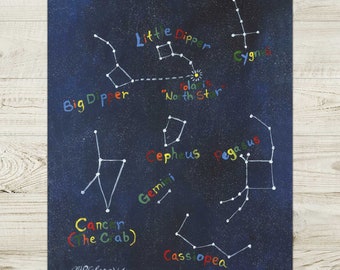 Little Dipper
Cygnus
Big Dipper
Polaris
"North Star"
Cepheus
Pegasus
Gemini
Cancer
(The Crab)
Cassiopea